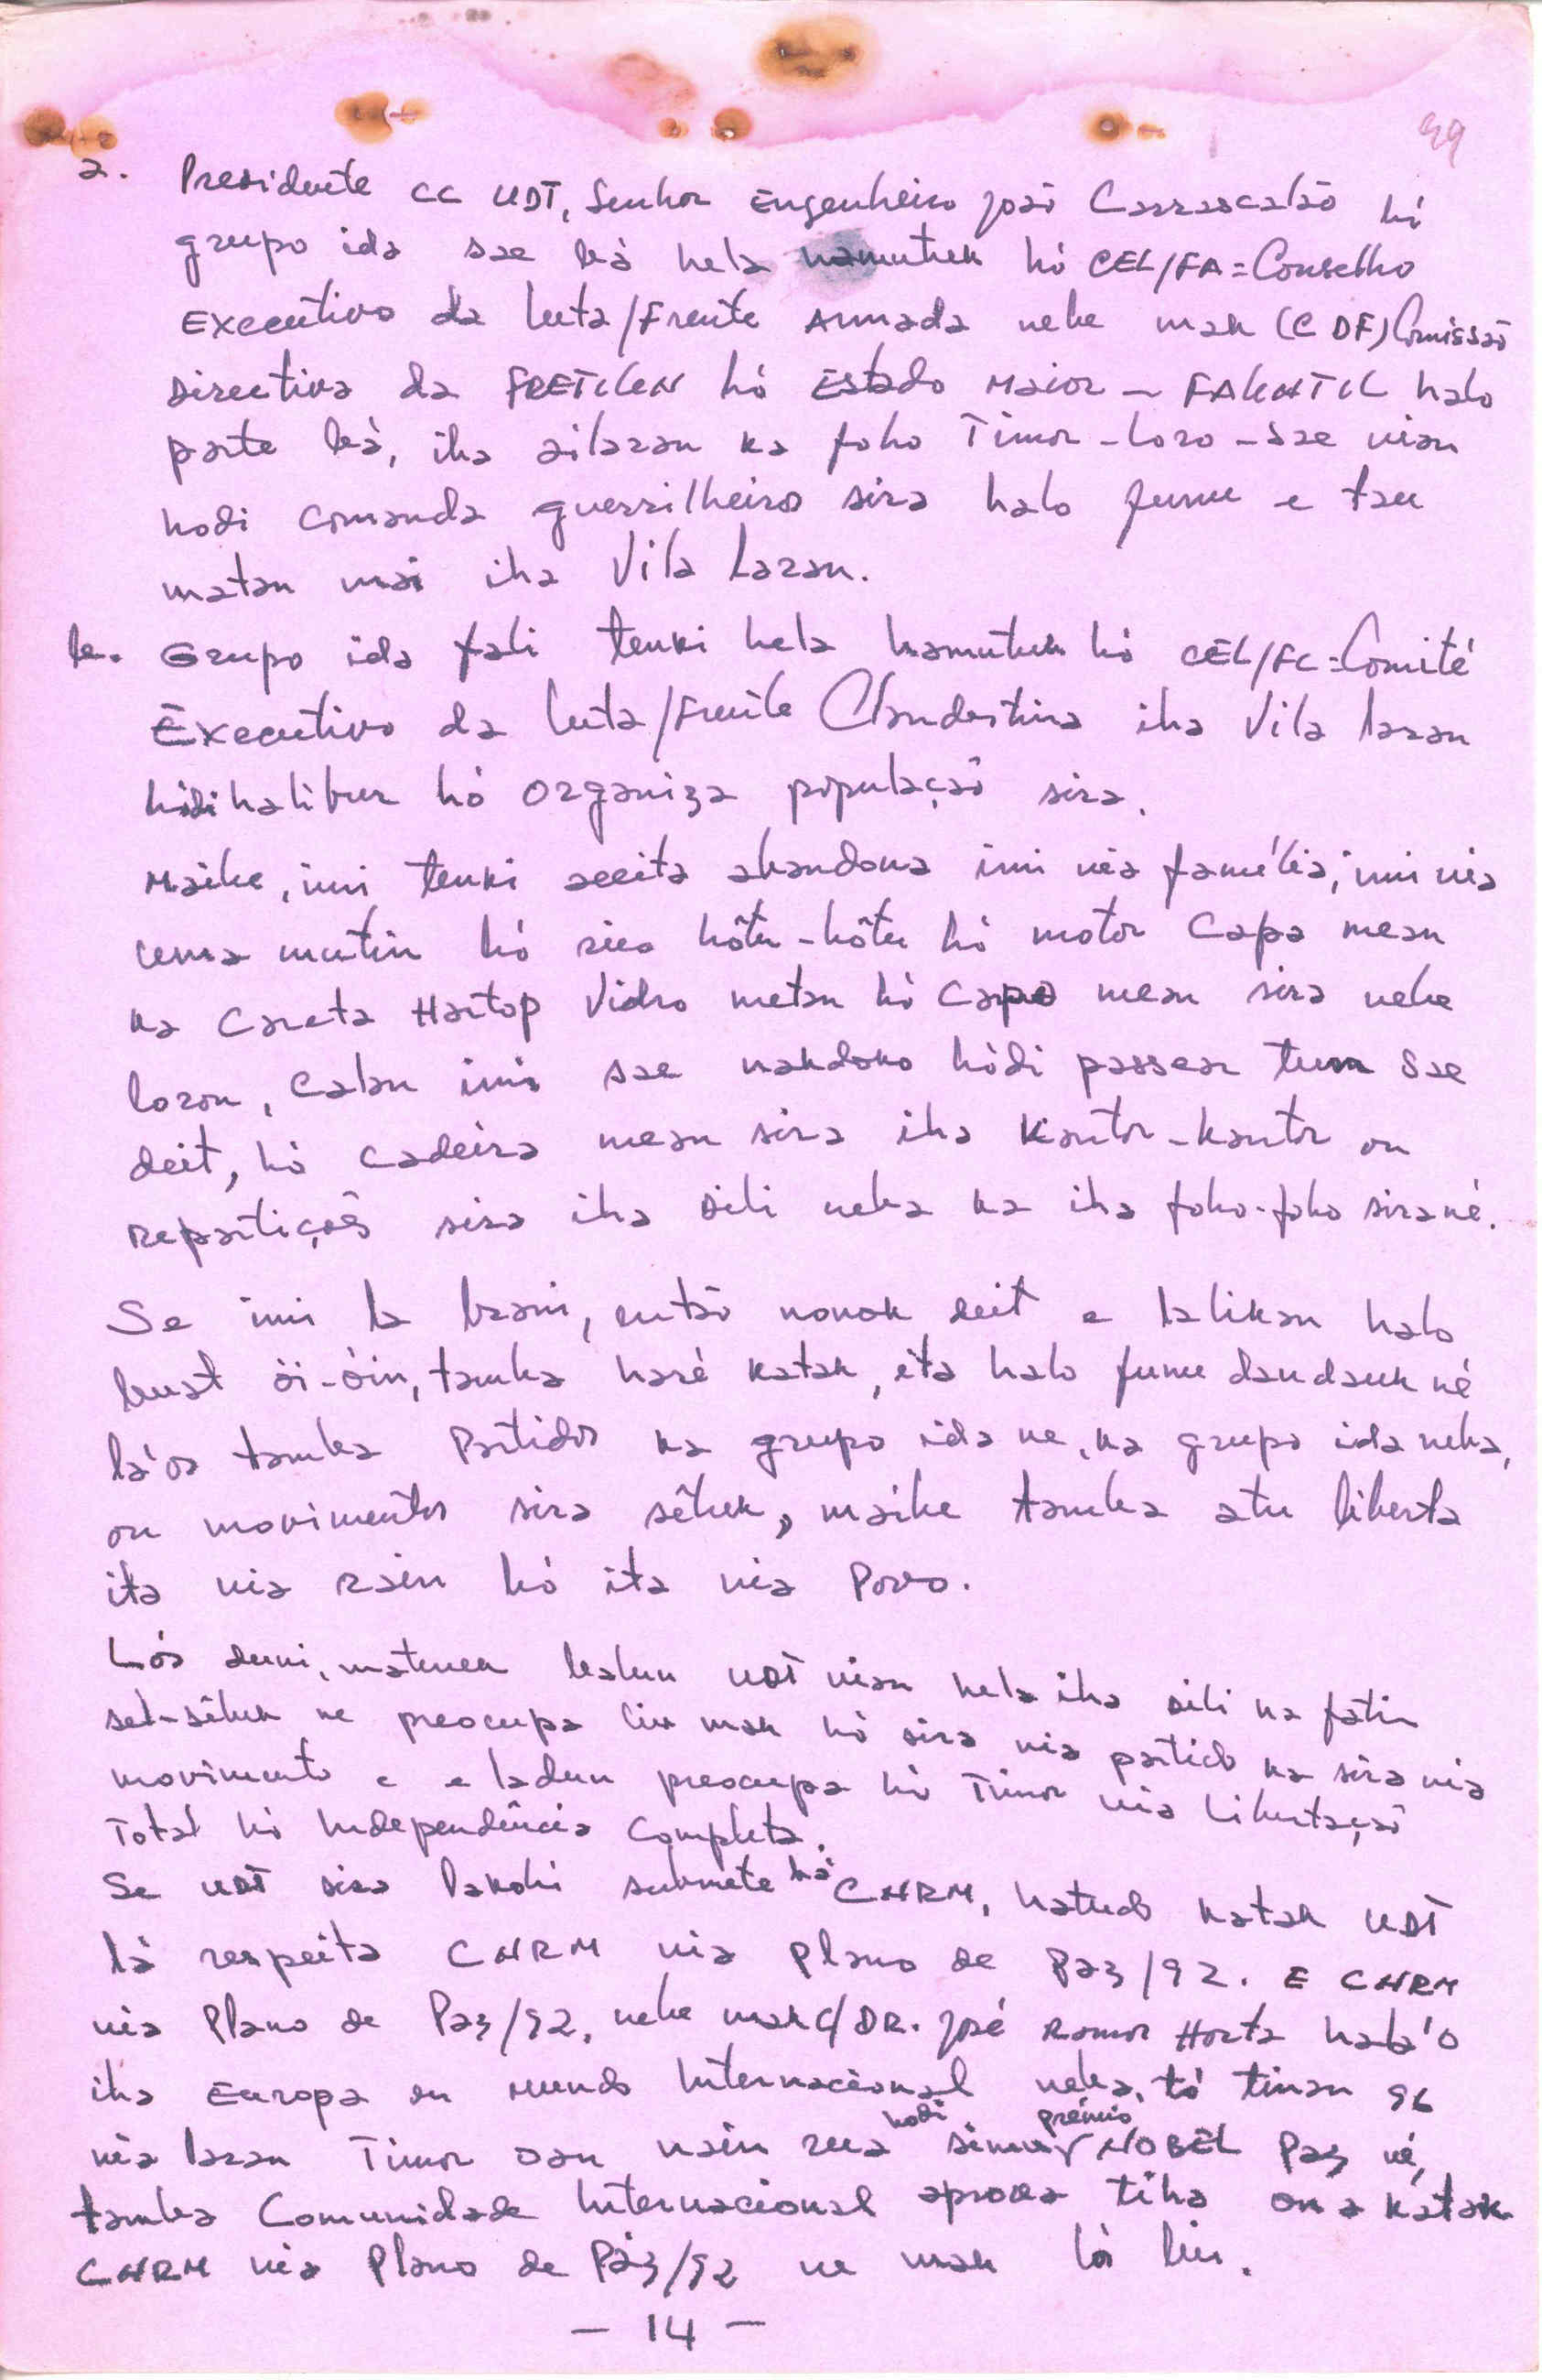 49
a. Presidente CC UDT, Senhor Engenheiro João Carrascalão hó
grupo ida sae bá hela hamutuk hó CEL/FA=Conselho
Executivo da Luta/Frente Armada nebe mak (CDF) Comissão
Directiva da FRETILIN hó Estado Maior - FALINTIL halo
parte bá, iha ailaran ka foho Timor-Loro-Sae nian
hodi comanda guerrilheiros sira halo funu e tau
matan mai iha Vila Laran.
b. Grupo ida fali tenki hela hamutuk hó CEL/FC=Comité
Executivo da Luta/Frente Clandestina iha Vila laran
hódi halibur hó organiza populaçaõ sira.
Maibe, imi tenki aceita abandona imi nia família, imi nia
uma mutin hó rico hôtu-hôtu hó motor Capa mean
ka Careta Hartop Vidro metan hó Capa mean sira nebe
loron, calan imi sae nakdoko hódi passear tum sae
deit, hó cadeira mean sira iha Kantor-kantor ou
repartiçoẽs sira iha Dili neba ka iha foho-foho sirané.
Se imi la brani, então nonok deit e labikan halo
buat ói-óin, tamba haré katak, ita halo funu daudauk né
lá'os tamba Partidos ka grupo ida ne, ka grupo ida neba,
ou movimentos sira sêluk, maibe tamba atu liberta
ita nia Rain hó ita nia Povo.
Lós duni, matenek balun UDT nian hela iha Dili ka fatin
sel-sêluk ne preocupa liu mak hó sira nia partido ka sira nia
movimento e e ladun preocupa hó Timor nia Libertaçaõ
Total hó Independência Completa.
Se UDT sira lakohi submete bá CNRM, hatudo katak UDT
lá respeita CNRM nia Plano de Paz/92. E CNRM
nia Plano de Paz/92, nebe mak c/DR. José Ramos Horta hala'o
iha Europa ou Mundo Internacional neba, tó tinan 96
nia laran Timor oan nain rua hodi simu prémio NOBEL Paz né,
tamba Comunidade Internacional aprova tiha ona katak
CNRM nia Plano de Páz/92 ne mak lós liu.
- 14 -